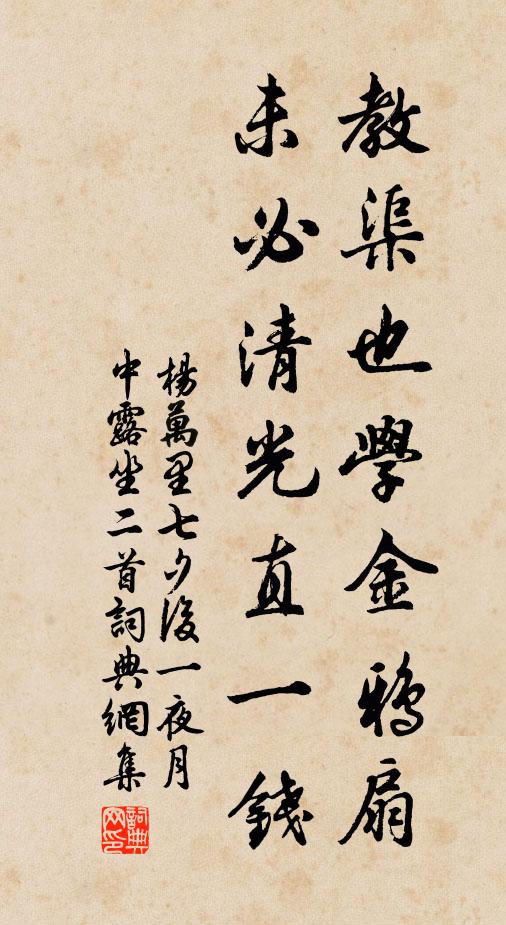 教渠也學金鴉扇
未必清光直一錢
楊萬里七夕後一夜月
中露坐二首詞典網集
詞典
网印